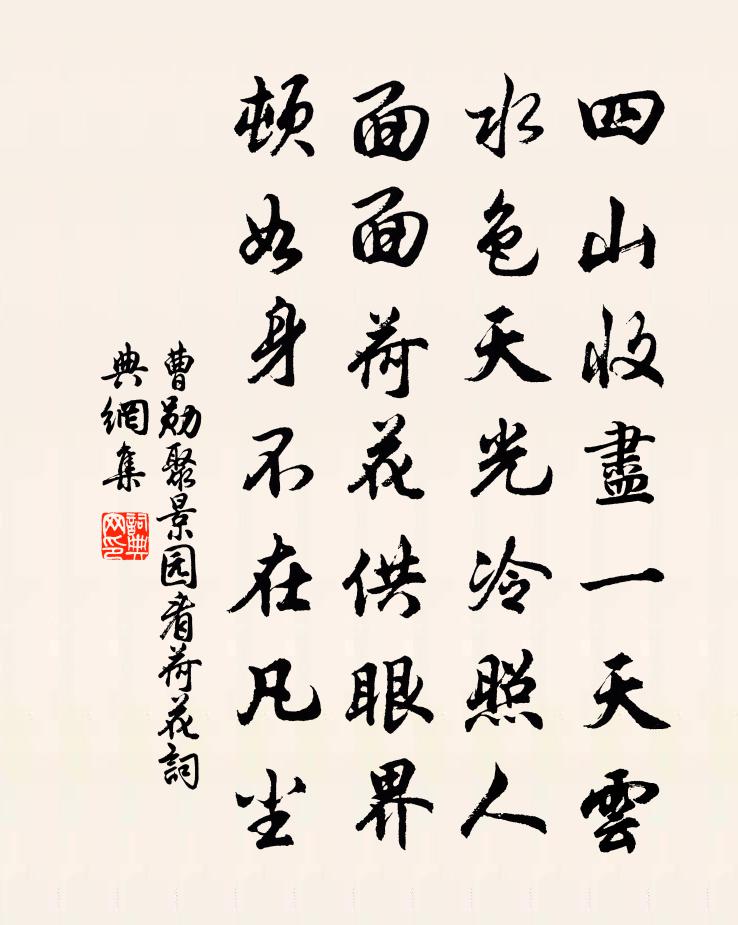 四山收盡一天雲
水色天光冷照人
面面荷花供眼界
頓如身不在凡尘
曹勋聚景园看荷花詞
典網集
詞典
网印